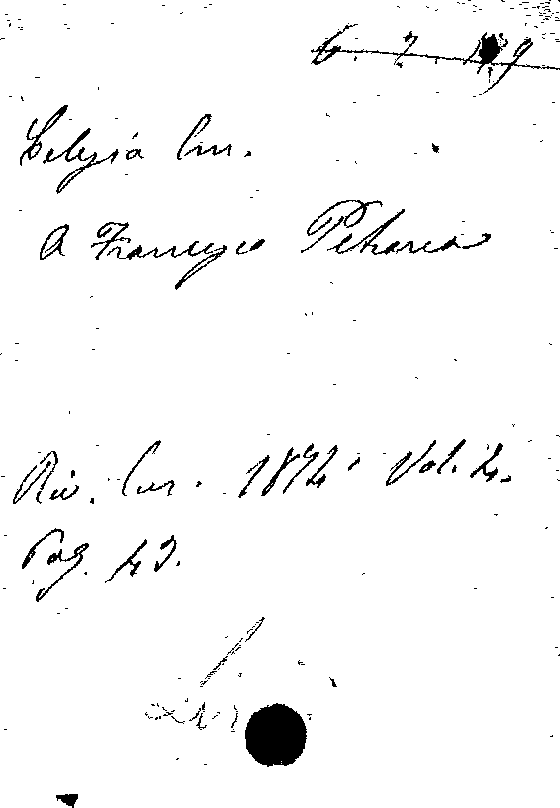 6. 7. 
Celesia Em.
A Francesco Petrarca
Riv. Eur. 1874. Vol. 4.
Pag. 43.